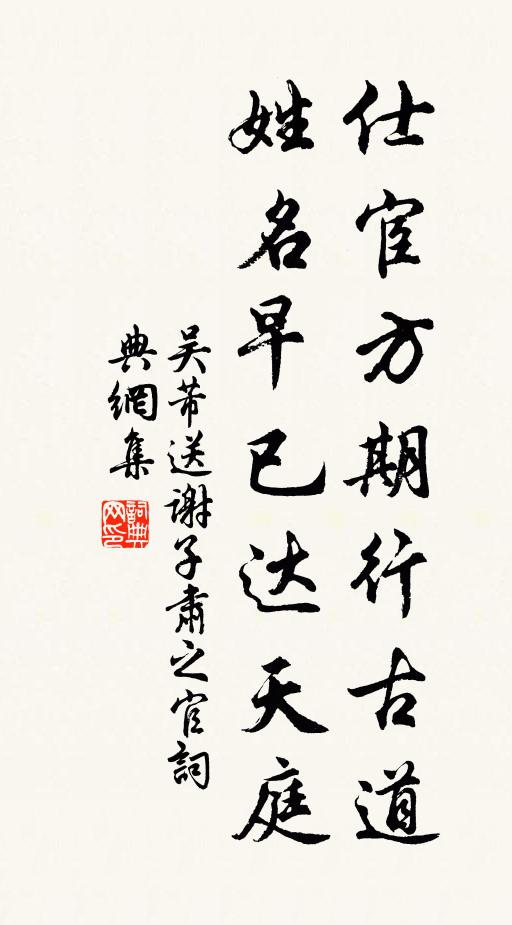 仕宦方期行古道
姓名早已达天庭
吴芾送谢子肃之官詞
典網集
詞典网印